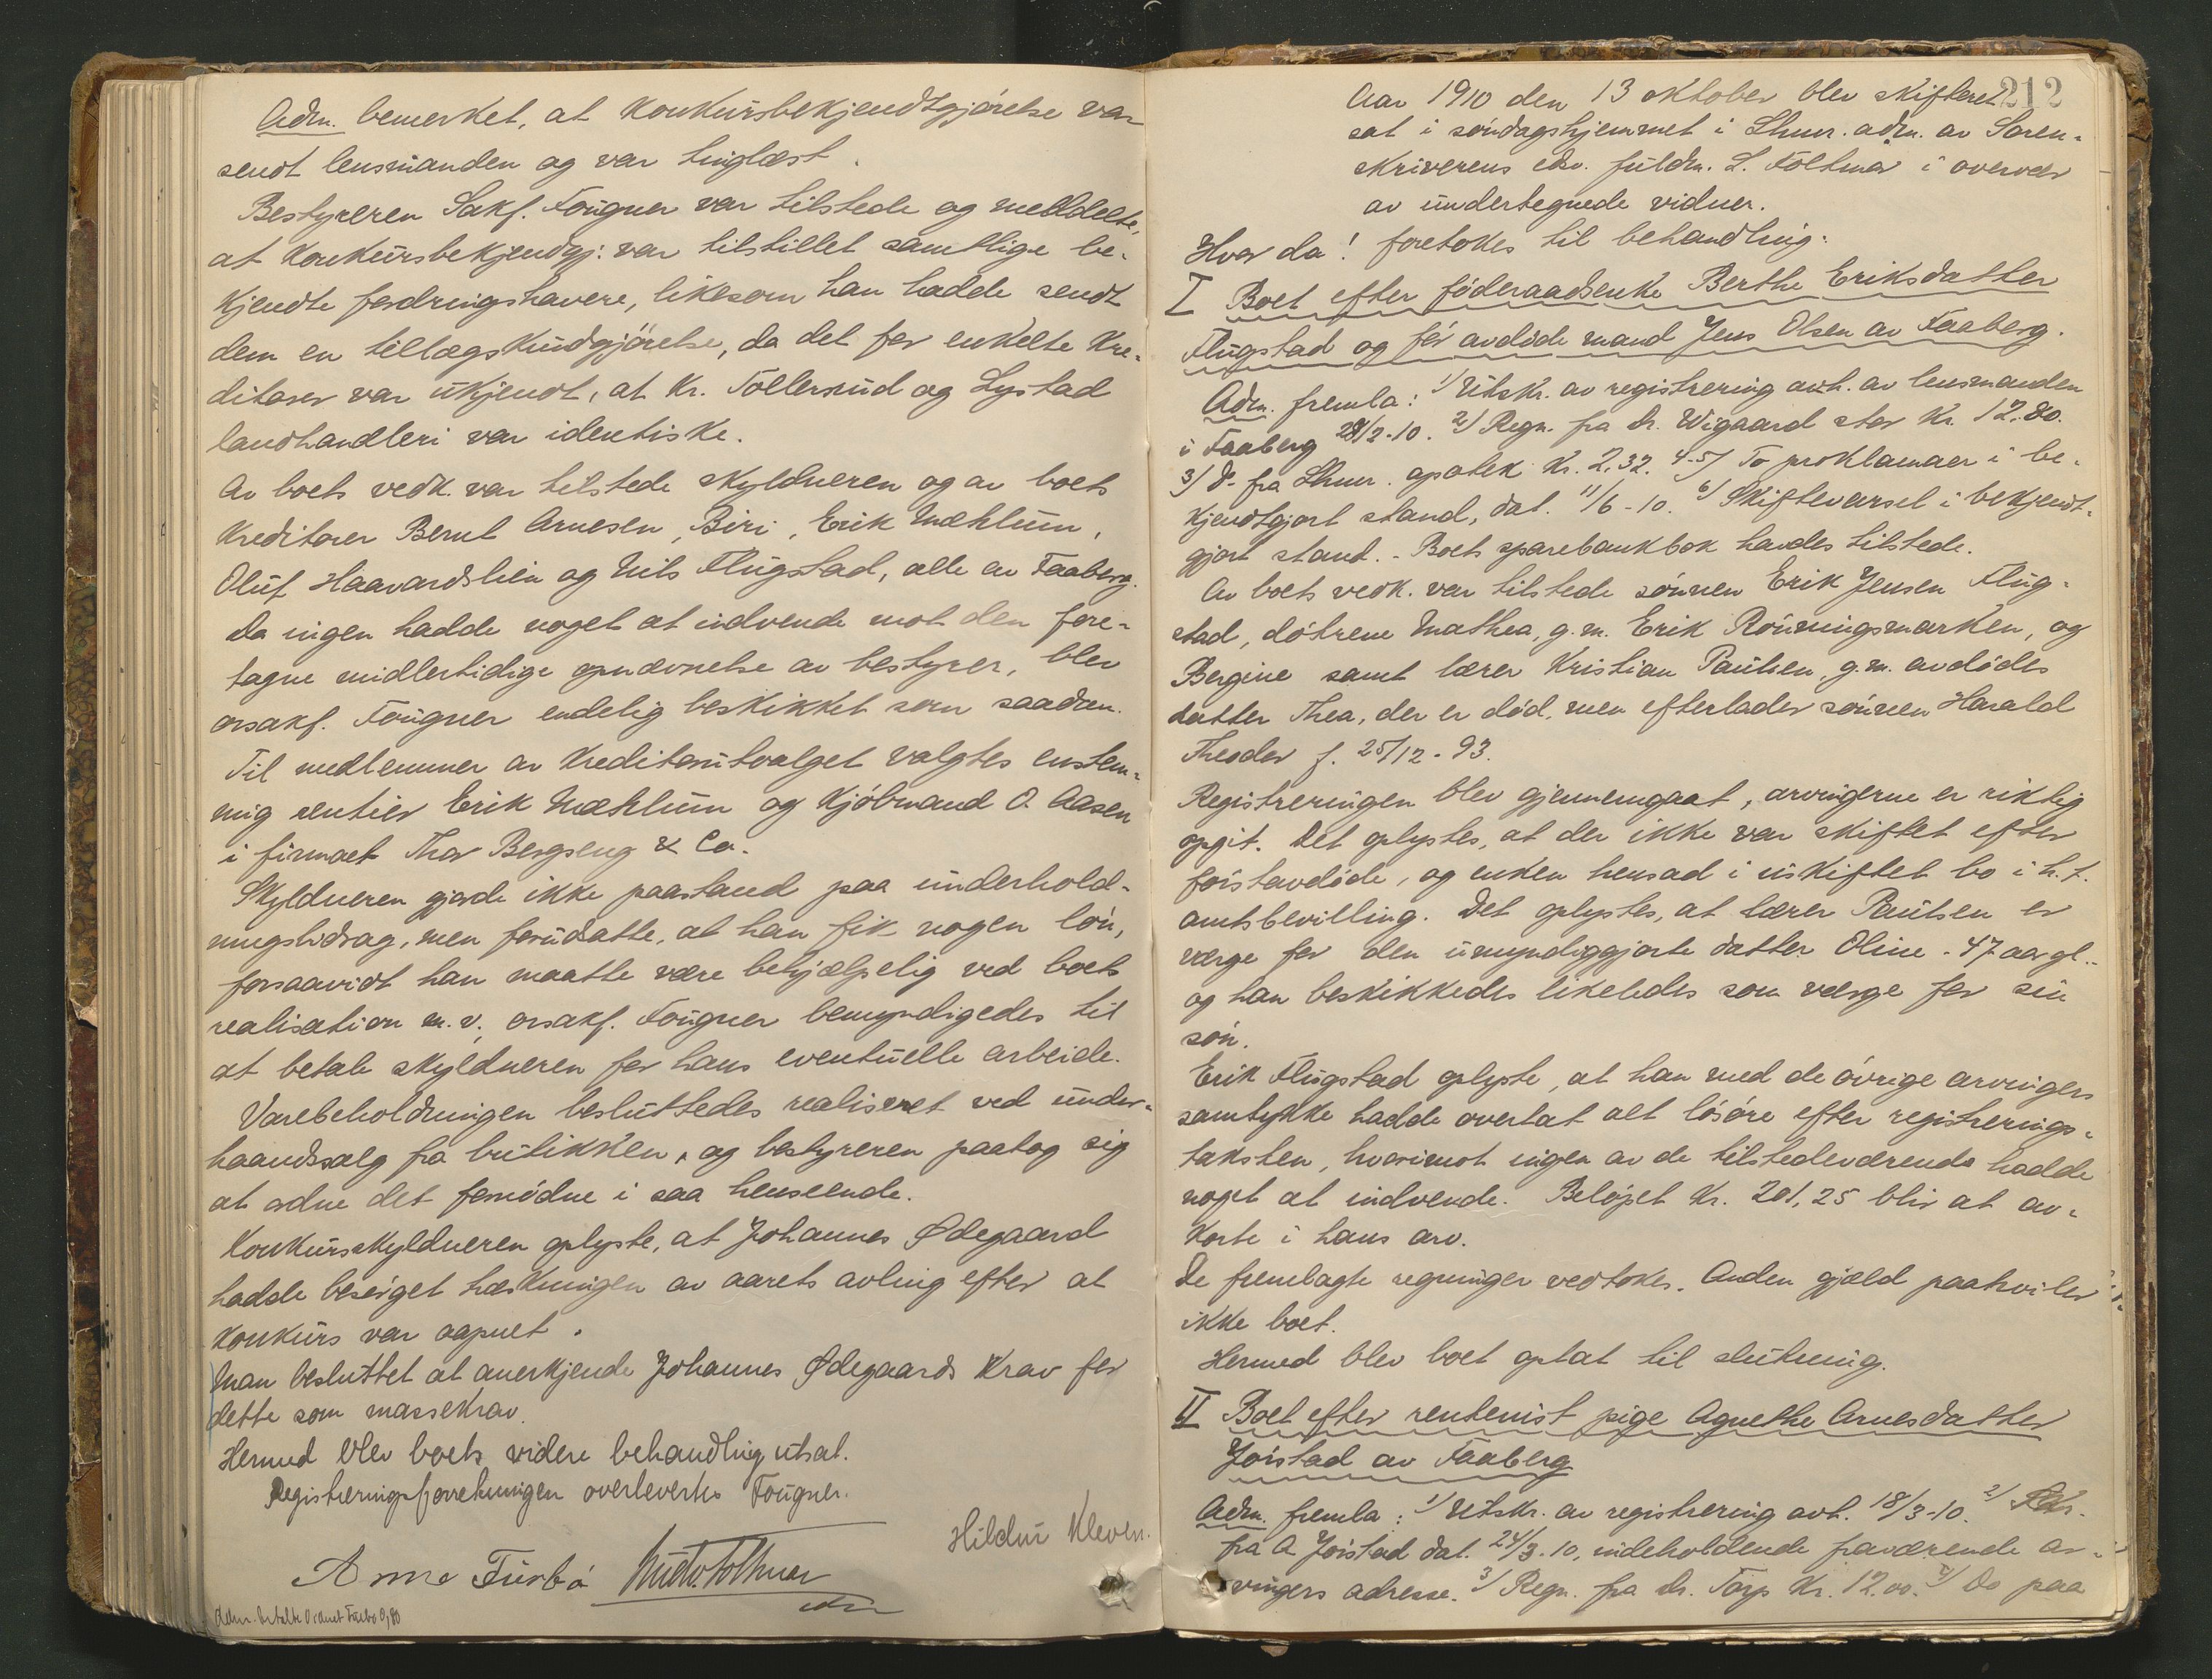 Adm. bemerket, at Konkursbekjendtgjörelse var
sendt lensmanden og var tinglæst.
Bestyreren Sakf. Fougner var tilstede og meddelte,
at Konkursbekjendgj: var tilstillet samtlige be-
kjendte fordringshavere, likesom han hadde sendt
dem en tillægskundgjörelse, da det for enkelte Kre-
ditorer var ukjendt, at Kr. Tollersrud og Lystad
landhandleri var identiske.
Av boets vedk. var tilstede skyldneren og av boets
Kreditorer Bernt Arnesen, Biri, Erik Mæhlum,
Oluf Haavardslien og Nils Flugstad, alle av Faaberg.
Da ingen hadde noget at indvende mot den fore-
tagne midlertidige opnævnelse av bestyrer, blev
orsakf. Fougner endelig beskikket som saadan.
Til medlemmer av Kreditorutvalget valgtes enstem-
mig rentier Erik Mæhlum og Kjöbmand O. Aasen
i firmaet Thor Bergseng & Co.
Skyldneren gjorde ikke paastand paa underhold-
ningsbidrag, men forudsatte, at han fik nogen lön,
forsaavidt han maatte være behjælpelig ved boets
realisation m.v., orsakf. Fougner bemyndigedes til
at betale skyldneren for hans eventuelle arbeide.
Varebeholdningen besluttedes realiseret ved under-
haandssalg fra butikken, og bestyreren paatog sig
at ordne det fornödne i saa henseende.
Konkursskyldneren oplyste, at Johannes Ødegaard
hadde besörget hæskningen av aarets avling efter at
Konkurs var aapnet.
Man besluttet at anerkjende Johannes Ødegaards Krav for
dette som massekrav.
Hermed blev boets videre behandling utsat.
Registreringsforretningen overlevertes Fougner.
Hildur Kleven.
Arne Furbö
Adm. betalte Arne Furbo 0,80
212
Aar 1910 den 13 oktober blev skifteret
sat i söndagshjemmet i Lhmr. adm. av Soren-
skriverens edsv. fuldm. L. Foltmar i overvær
av undertegnede vidner.
Hvor da! foretokes til behandling:
I Boet efter föderaadsenke Berthe Eriksdatter
Flugstad og för avdöde mand Jens Olsen av Faaberg.
Adm. fremla: 1/ Utskr. av registrering avh. av lensmanden
i Faaberg 28/2-10. 2/ Regn. fra Dr. Wigaard stor Kr. 12.80.
3/ d- fra Lhmr. apotek Kr. 2,32. 4-5/ To proklamaer i be-
kjendtgjort stand, dat. 11/6-10. 6/ Skiftevarsel i bekjendt-
gjort stand. - Boets sparebankbok havdes tilstede.
Av boets vedk. var tilstede sönnen Erik Jensen Flug-
stad, dötrene Mathea, g.m. Erik Rönningsmarken, og
Bergine samt lærer Kristian Paulsen, g.m. avdödes
datter Thea, der er död, men efterlader sönnen Harald
Theodor f. 25/12-93.
Registreringen blev gjennemgaat, arvingerne er riktig
opgit. Det oplystes, at der ikke var skiftet efter
förstavdöde, og enken hensad i uskiftet bo i h.t.
amtsbevilling. Det oplystes, at lærer Paulsen er
værge for den umyndiggjorte datter Oline - 47 aar gl. -
og han beskikkedes likeledes som værge for sin
sön.
Erik Flugstad oplyste, at han med de övrige arvingers
samtykke hadde overtat alt lösöre efter registrerings-
taksten, hvorimot ingen av de tilstedeværende hadde
noget at indvende. Belöpet Kr. 201,25 blir at av-
korte i hans arv.
De fremlagte regninger vedtokes. Anden gjæld paahviler
ikke boet.
Hermed blev boet optat til slutning.
II Boet efter rentenist pige Agnethe Arnesdatter
Jörstad av Faaberg
Adm. fremla: 1/ Utskr. av registrering avh. 18/3-10. 2/
fra A Jörstad dat. 24/3.10, indeholdende fraværende ar-
vingers adresse. 3/ Regn. fra Dr. Torp Kr. 12.00. 4/ Do paa